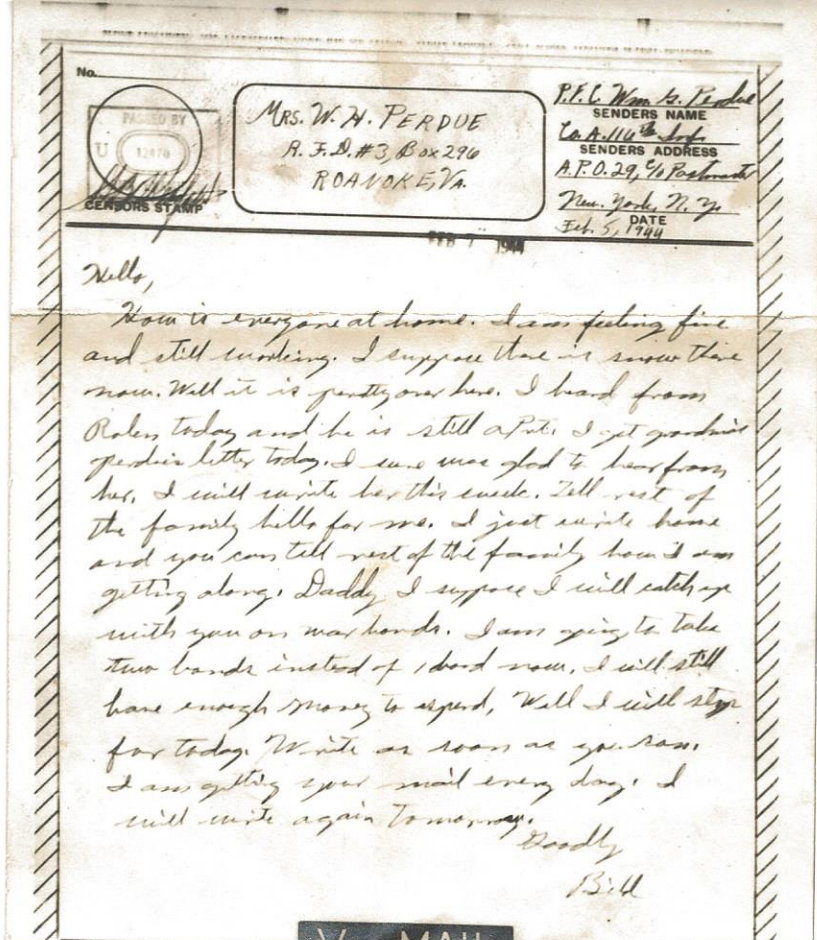 No.
PASSED BY
U
12470
CENSORS STAMP
MRS. W. H. PERDUE
R.F.D.#3, Box 296
ROANOKE, VA.
P.F.C. Wm. G. Perdue
SENDERS NAME
Co. A. 116th Inf.
SENDERS ADDRESS
A.P.O. 29, c/o Postmaster
New York, N. Y.
DATE
Feb. 5, 1944
FEB 7 1944
Hello,
How is everyone at home. I am feeling fine
and still working. I suppose there is snow there
now. Well it is pretty over here. I heard from
today and he is still a Pvt. I got
letter today. I sure was glad to hear from
her. I will write her this week. Tell rest of
the family hello for me. I just write home
and you can tell rest of the family how I am
getting along. Daddy, I suppose I will catch up
with you on war bonds. I am going to take
two bonds instead of 1 bond now. I will still
have enough money to spend. Well I will stop
for today. Write as soon as you can.
I am getting your mail every day. I
will write again tomorrow.
Goodby
Bill
V MAIL